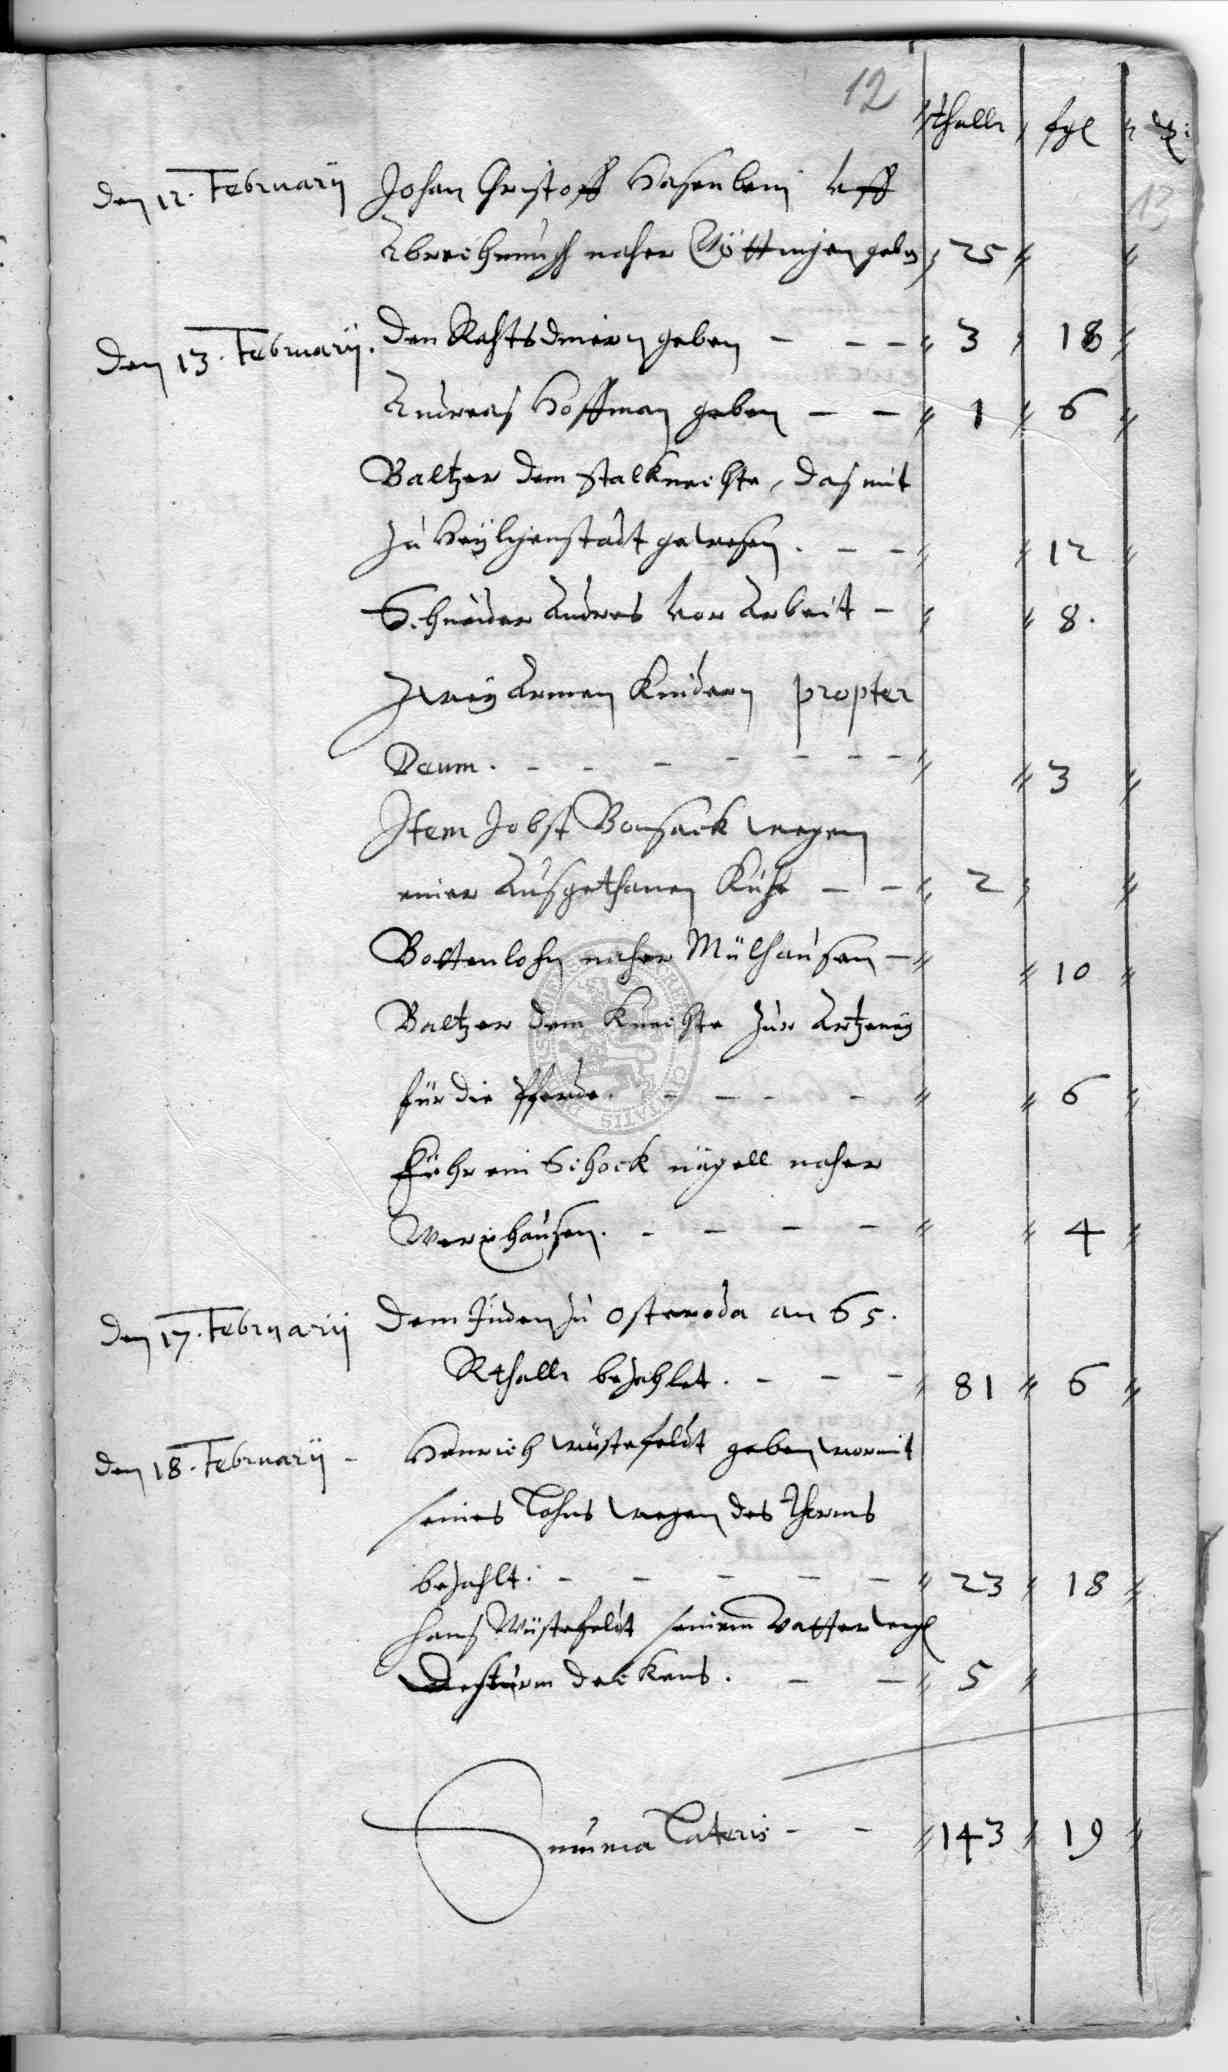 12
rthallr fgl ₰
13
Den 12. Februarij Johan Christoff Hasenbein uff
Abreichnungh naher Göttingen geben 25
Den 13. Februarij. Den Rahtsdienern geben - - - 3 18
Andreas Hoffman geben - - 1 6
Baltzer dem Stalknechte, das mit
zu Heyligenstadt gewesen. - - 12
Schneider Andres vor Arbeit - 8.
Zwey Armen Kindern propter
Deum. - - - - - - - 3
Item Jobst Bonsack wegen
einer Ausgethanen Kuhe - - 2
Bottenlohn naher Mülhausen - 10
Baltzer dem Knechte zur Artzeney
für die Pferde. - - - - 6
Führ ein Schock nägell naher
Werxhausen. - - - - 4
Den 17. Februarij Dem Juden zu Osteroda an 65.
Rthallr bezahlet. - - - 81 6
Den 18. Februarij - Henrich Wüstefeldt geben womit
seines Lohns wegen des Thorms
bezahlt. - - - - - 23 18
Hans Wüstefeldt seinem Vatter
deckens. - - 5
Summa Lateris - - 143 19